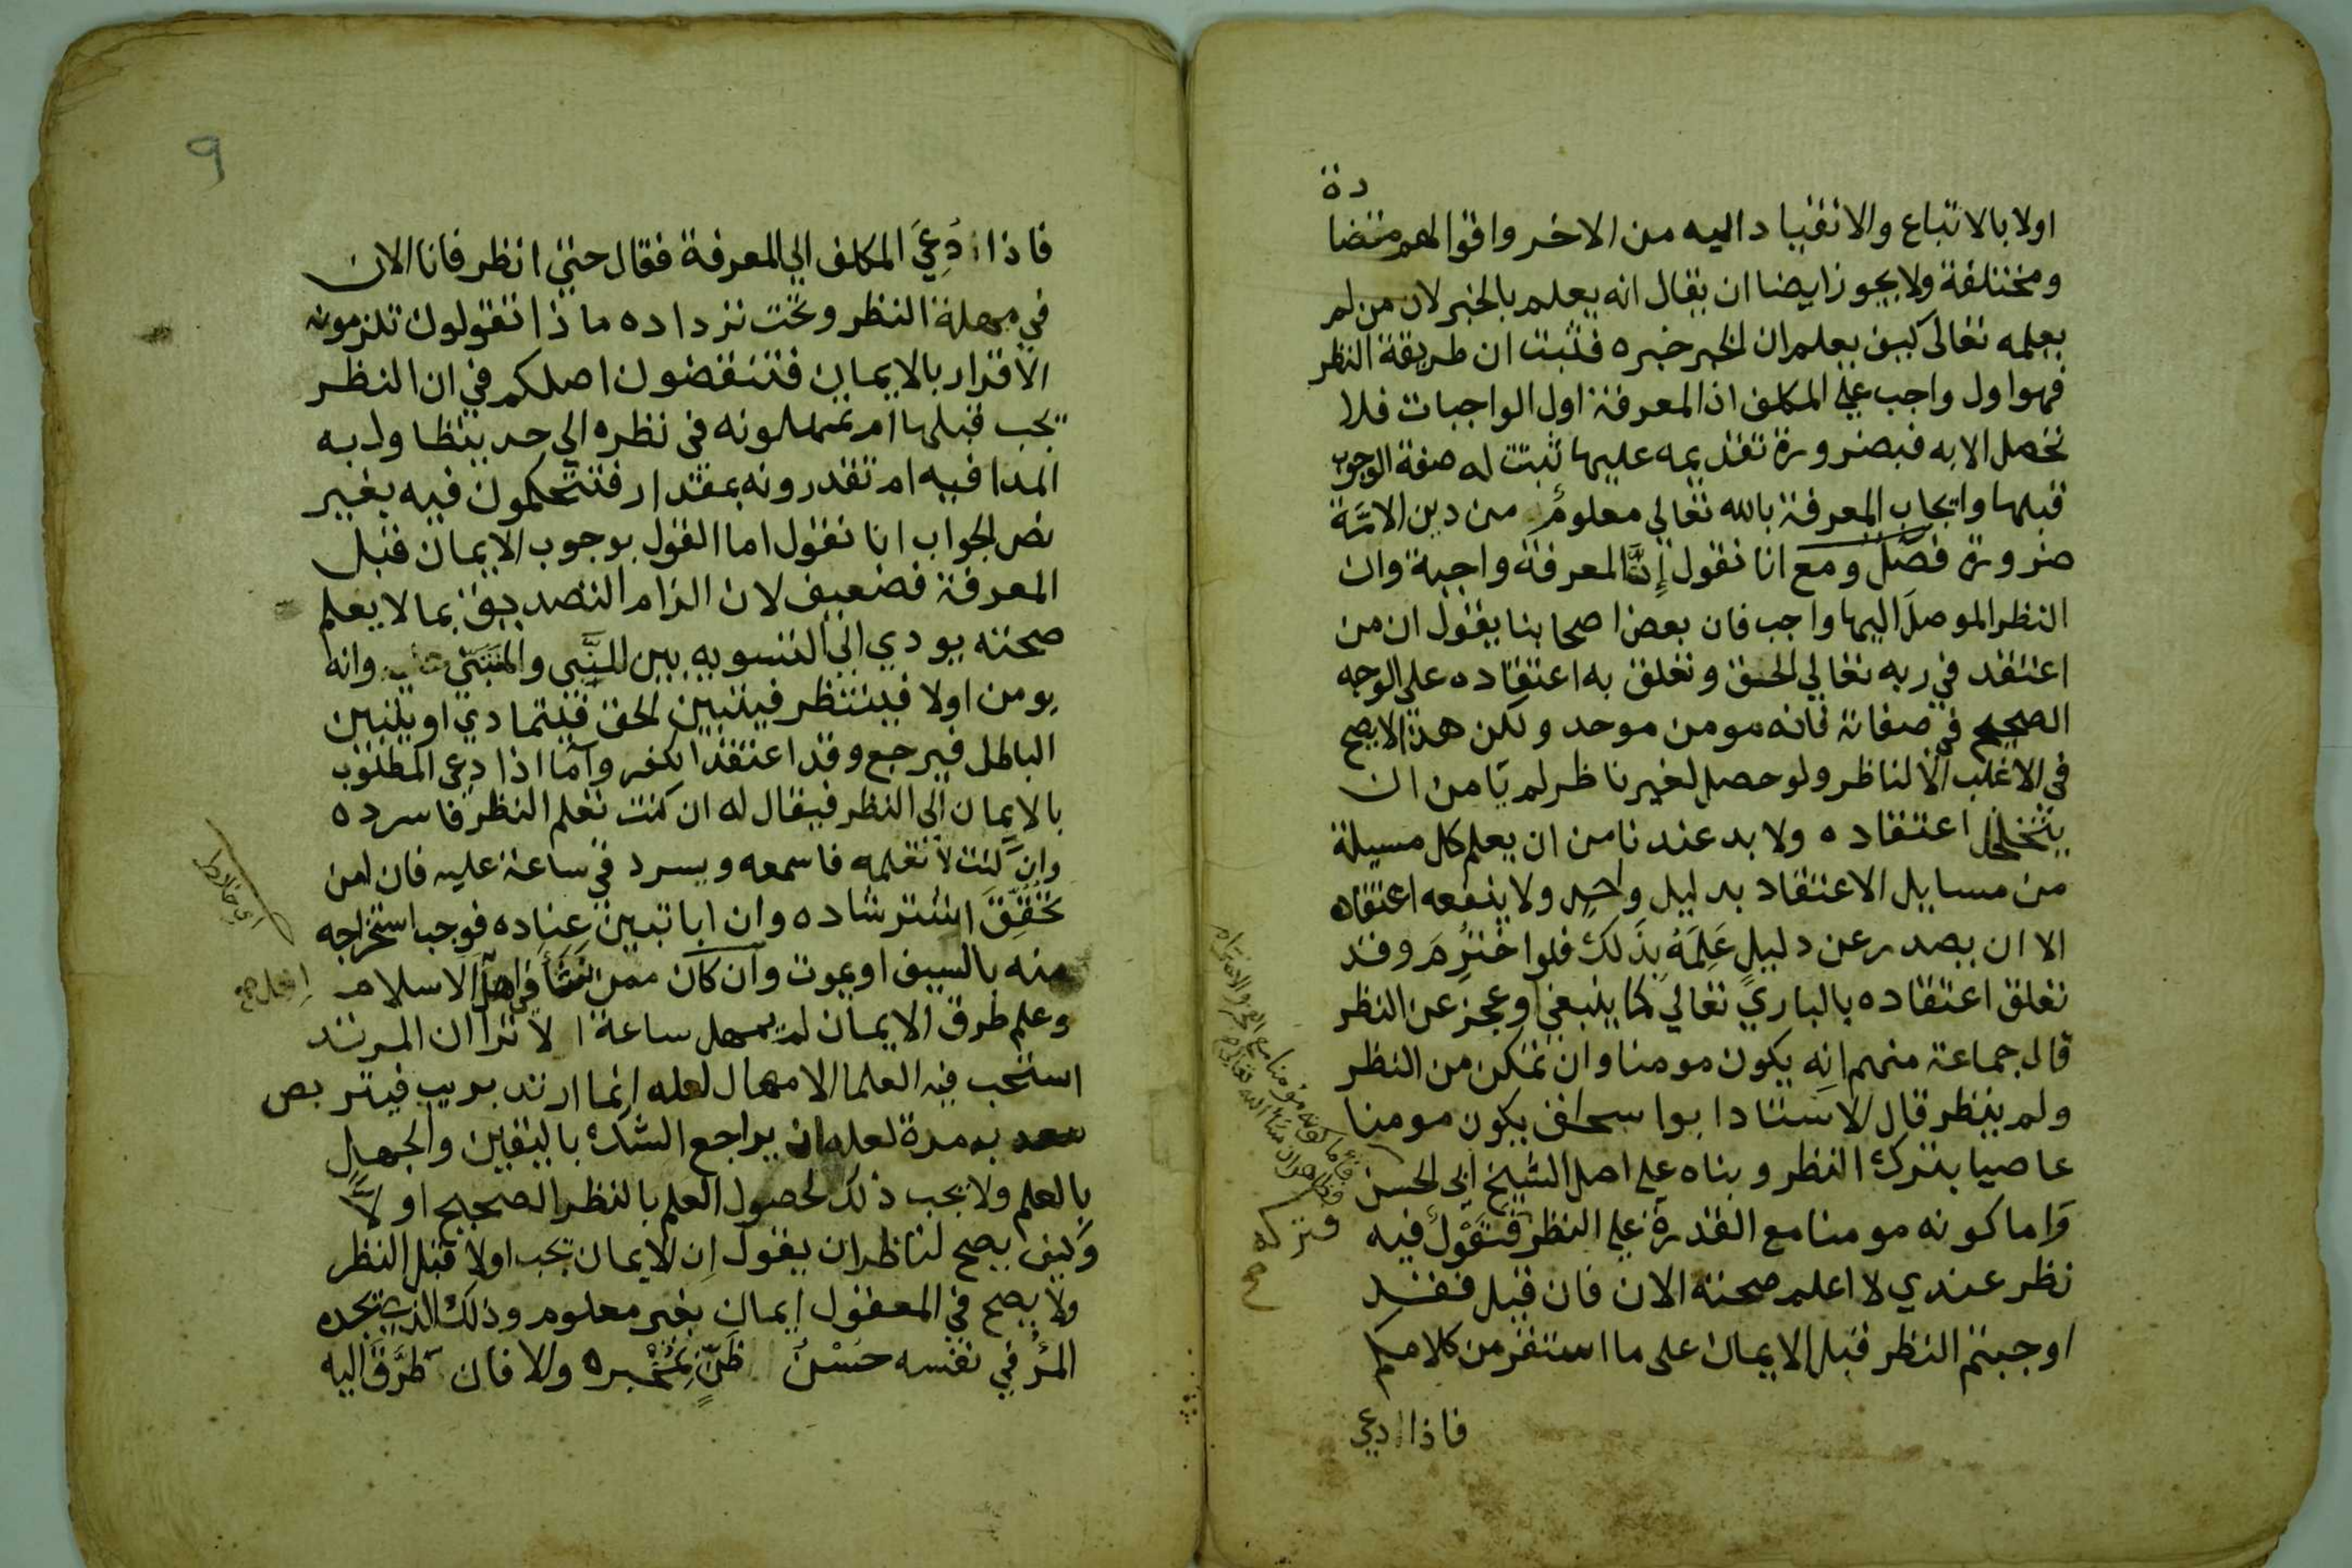 اولا بالاتباع والانقياد اليه من الاخر واقوالهم متضا
دة
ومختلفة ولا يجوز ايضا ان يقال انه يعلم بالخبر لان من لم
يعلمه تعالى كيف يعلم ان الخبر خبره فثبت ان طريقة النظر
فهو اول واجب علي المكلف اذ المعرفة اول الواجبات فلا
تحصل الا به فبضرورة تقديمه عليها ثبتت له صفة الوجوب
قبلها وايجاب المعرفة بالله تعالي معلوم من دين الامة
ضرورة فصل ومع انا نقول إن المعرفة واجبة وان
النظر الموصل اليها واجب فان بعض اصحابنا يقول ان من
اعتقد في ربه تعالي الحق وتعلق به اعتقاده علي الوجه
الصحيح في صفاته فانه مومن موحد ولكن هذا لا يصح
في الاغلب الا لناظر ولو حصل لغير ناظر لم يامن ان
يتخلخل اعتقاده ولا بد عندنا من ان يعلم كل مسيلة
من مسايل الاعتقاد بدليل واحد ولا ينفعه اعتقاده
الا ان يصدر عن دليل عَلِمَهُ بذلك فلو اختُرِمَ وقد
تعلق اعتقاده بالباري تعالي كما ينبغي وعجز عن النظر
قال جماعة منهم انه يكون مومنا وان تمكن من النظر
ولم ينظر قال الاستاد ابوا سحاق يكون مومنا
عاصيا بترك النظر وبناه علي اصل الشيخ ابي الحسن
واما كونه مومنا مع القدرة علي النظر فنقول فيه
وتركه
صح
نظر عندي لا اعلم صحته الان فان قيل فقد
اوجبتم النظر قبل الايمان على ما استقر من كلامكم
فاذا ادعي
٩
فاذا ادُعِيَ المكلف الي المعرفة فقال حتي انظر فانا الان
في مهلة النظر وتحت ترداده ما ذا تقولون تلزمونه
الاقرار بالايمان فتنقضون اصلكم في ان النظر
يجب قبلها ام تمهلونه في نظره الي حد يتطاول به
المدا فيه ام تقدرونه بمقدار فتتحكمون فيه بغير
نص الجواب انا نقول اما القول بوجوب الايمان قبل
المعرفة فضعيف لان الزام التصديق بما لا يعلم
صحته يودي الي التسويه بين النبي والمتنبي وانه
يومن اولا فينتظر فيتبين الحق فيتمادي او يتبين
الباطل فيرجع وقد اعتقد الكفر وآما اذا دعي المطلوب
بالايمان الي النظر فيقال له ان كنت تعلم النظر فاسرده
وان كنت لا تعلمه فاسمعه ويسرد في ساعة عليه فان امن
تحقق استرشاده وان ابا تبين عناده فوجب استخراجه
منه بالسيف او يموت وان كان ممن نشأ في اهل الاسلام
وعلم طرق الايمان لم يمهل ساعة الا ترا ان المرتد
استحب فيه العلما الامهال لعله انما ارتد بريب فيتربص
به مدة لعله ان يراجع الشك باليقين والجهل
بالعلم ولا يجب ذلك لحصول العلم بالنظر الصحيح او لاً
وكيف يصح لناظر ان يقول إن الايمان يجب اولا قبل النظر
ولا يصح في المعقول إيمان بغير معلوم وذلك الذي يجده
المرُ في نفسه حُسْنُ ظَنٍّ بمُخْبِره والا فان طَرَّقَ اليه